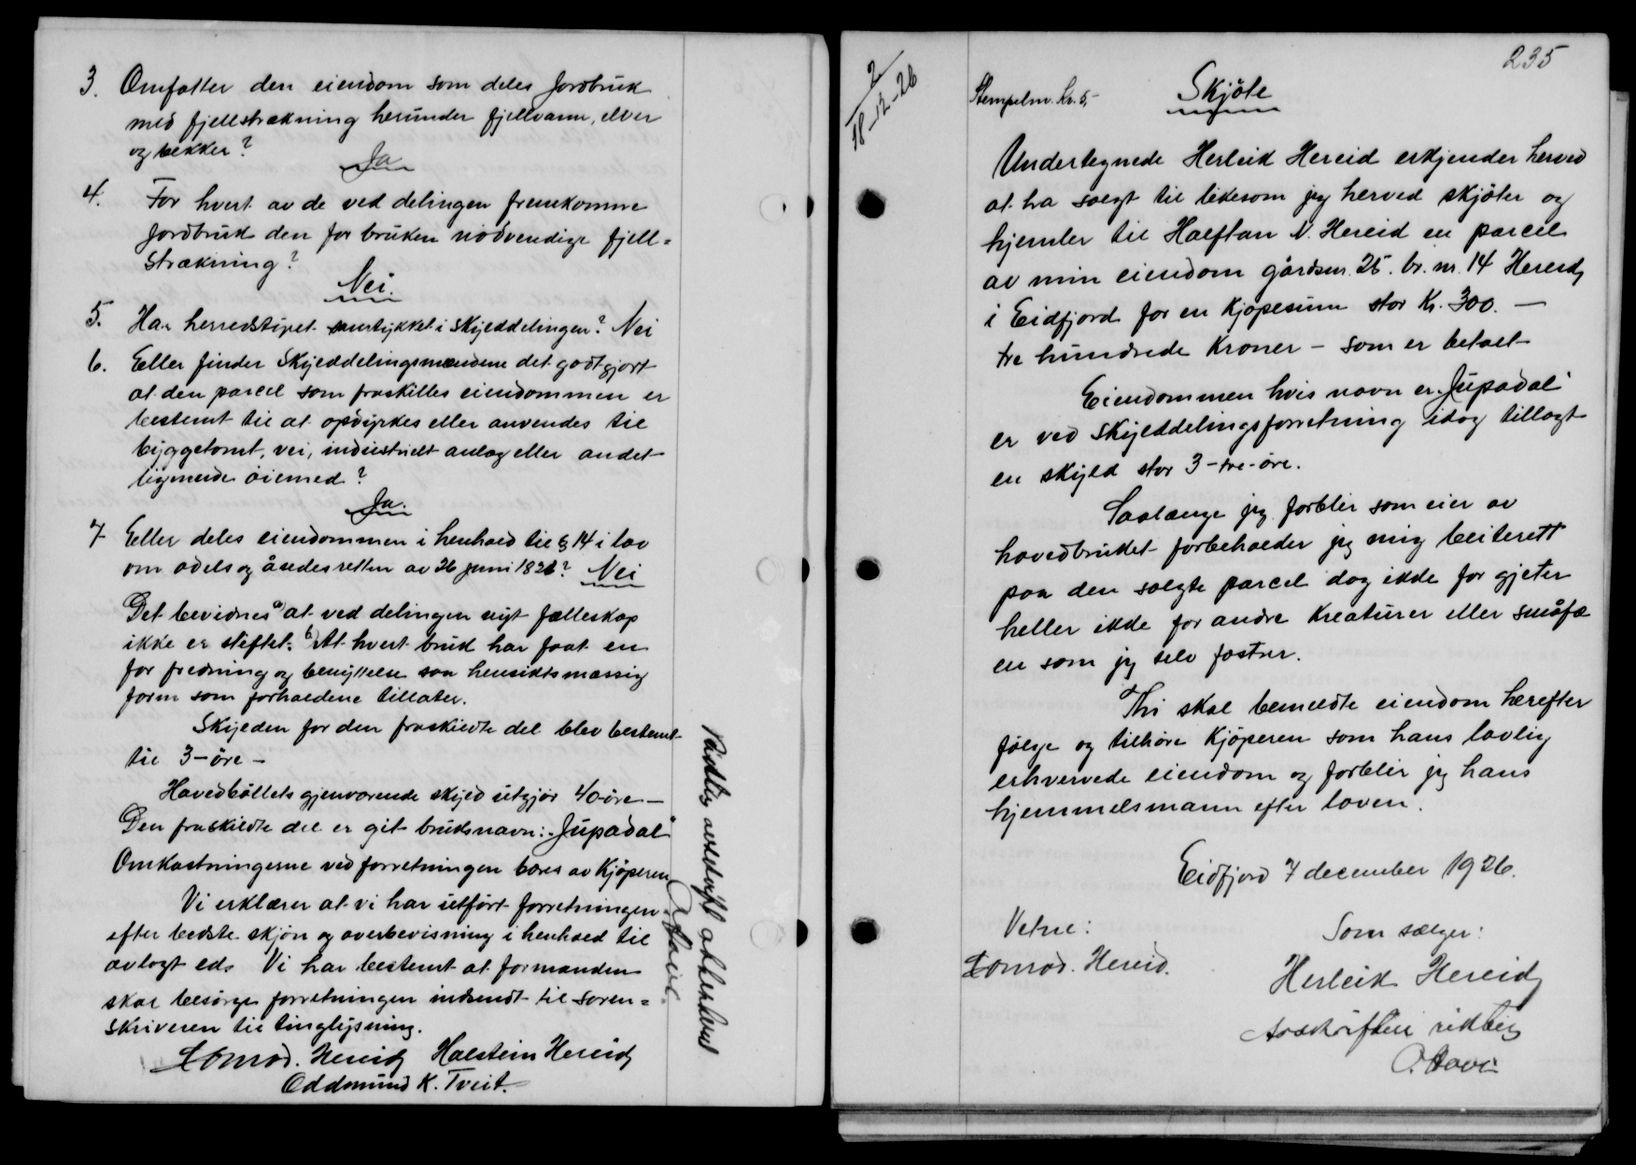 3. Omfatter den eiendom som deles Jordbruk
med fjellstrækning herunder fjellvann, elver
og bekker?
Ja
4. For hvert av de ved delingen fremkomne
Jordbruk den for bruken nödvendige fjell=
strækning?
Nei.
5. Har herredstyret samtykket i skylddelingen? Nei
6. Eller finder Skylddelingsmændene det godtgjort
at den parcel som fraskilles eiendommen er
bestemt til at opdyrkes eller anvendes til
byggetomt, vei, industrielt anlæg eller andet
lignende öiemed?
Ja.
7 Eller deles eiendommen i henhold til § 14 i lov
om odels og åsedesretten av 26 juni 1821? Nei
Det bevidnes a) at ved delingen nyt fælleskap
ikke er stiftet. b) At hvert bruk har faat en
for fredning og benyttelse saa hensiktsmæssig
form som forholdene tillater.
Skylden for den fraskildte del blev bestemt
til 3-öre -
Hovedböllets gjenværende skyld utgjör 40 öre -
Den fraskildte del er git bruksnavn: "Jupadal"
Omkostningerne ved forretningen bæres av Kjöperen
Vi erklærer at vi har utfört forretningen
efter bedste skjön og overbevisning i henhold til
avlagt ed. Vi har bestemt at formanden
skal besörge forretningen indsendt til soren=
skriveren til tinglysning.
Konrad. Hereid Halstein Hereid
Oddmund K. Tveit.
235
2/18-12-26
Stempelm. Kr. 5,-
Skjöte
Undertegnede Herleik Hereid erkjender herved
at ha solgt til likesom jeg herved skjöter og
hjemler til Halftan N. Hereid en parcel
av min eiendom gårdsnr. 25. br. nr. 14 Hereid
i Eidfjord for en Kjöpesum stor Kr. 300. —
tre hundrede Kroner - som er betalt
Eiendommen hvis navn er "Jupadal"
er ved Skylddelingsforretning idag tillagt
en skyld stor 3 - tre - öre.
Saalænge jeg forblir som eier av
hovedbruket forbeholder jeg mig beiterett
paa den solgte parcel dog ikke for gjeter
heller ikke for andre Kreaturer eller småfæ
en som jeg selv fostrer.
Thi skal bemeldte eiendom herefter
fölge og tilhöre Kjöperen som hans lovlig
erhvervede eiendom og forblir jeg hans
hjemmelsmann efter loven.
Eidfjord 7 december 1926.
Vitne:
Konrad. Hereid.
Som sælger:
Herleik Hereid
Avskriften riktig